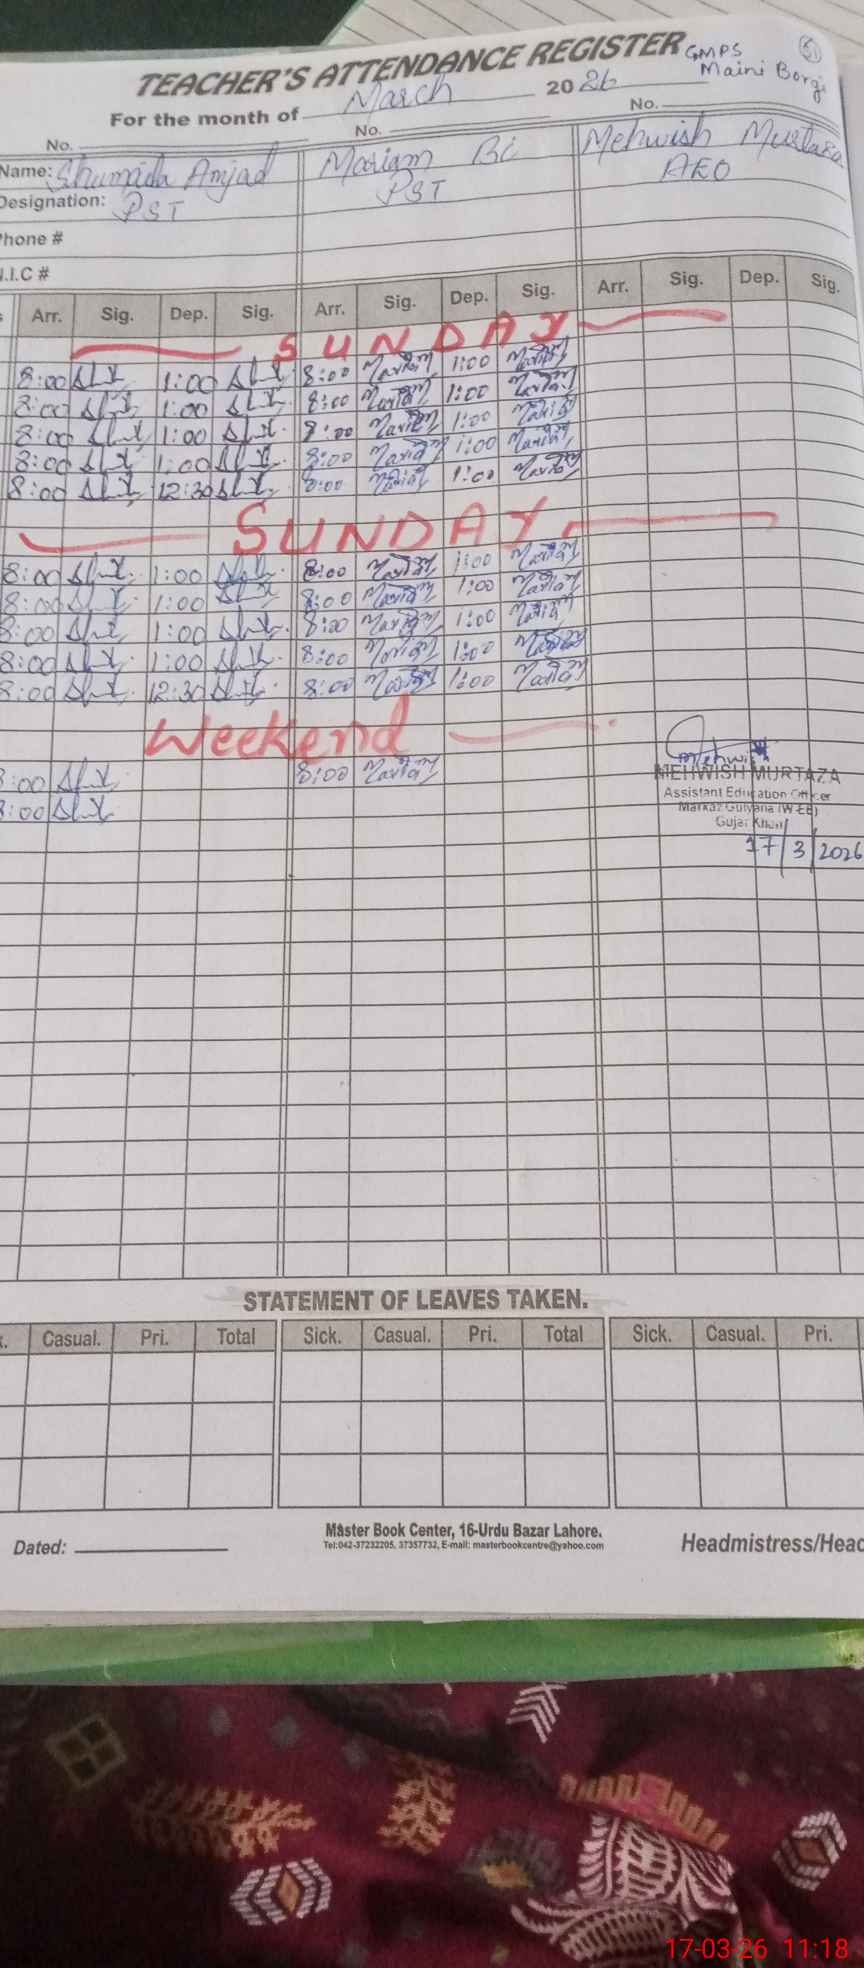 TEACHER'S ATTENDANCE REGISTER GMPS 51
Maini Borgi
For the month of March 2026
No. No. No.
Name: Shumaila Amjad Mariam Bi Mehwish Murtaza
Designation: PST PST AEO
Phone #
I.C #
Arr. Sig. Dep. Sig. Arr. Sig. Dep. Sig. Arr. Sig. Dep. Sig.
SUNDAY
8:00 1:00 8:00 Mariam 1:00 Mariam
8:00 1:00 8:00 Mariam 1:00 Mariam
8:00 1:00 8:00 Mariam 1:00 Mariam
8:00 1:00 8:00 Mariam 1:00 Mariam
8:00 12:30 8:00 Mariam 1:00 Mariam
SUNDAY
8:00 1:00 8:00 Mariam 1:00 Mariam
8:00 1:00 8:00 Mariam 1:00 Mariam
8:00 1:00 8:00 Mariam 1:00 Mariam
8:00 1:00 8:00 Mariam 1:00 Mariam
8:00 12:30 8:00 Mariam 1:00 Mariam
Weekend
8:00 8:00 Mariam
8:00
Mehwish
MEHWISH MURTAZA
Assistant Education Officer
Markaz Gulyana (W-EE)
Gujar Khan
17/3/2026
STATEMENT OF LEAVES TAKEN.
Casual. Pri. Total Sick. Casual. Pri. Total Sick. Casual. Pri.
Dated: Master Book Center, 16-Urdu Bazar Lahore. Headmistress/Head
Tel:042-37232205, 37357732, E-mail: masterbookcentre@yahoo.com
17-03-26 11:18